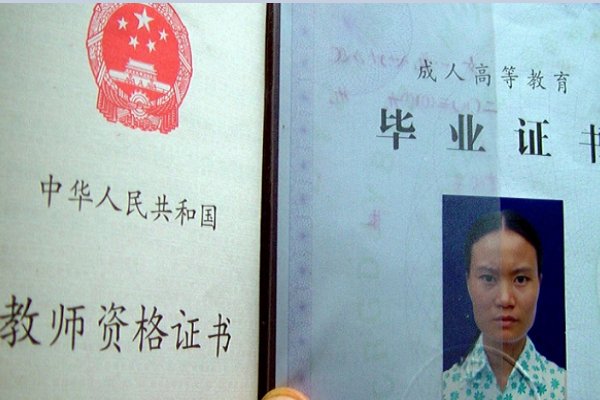 中华人民共和国
教师资格证书
成人高等教育
毕业证书